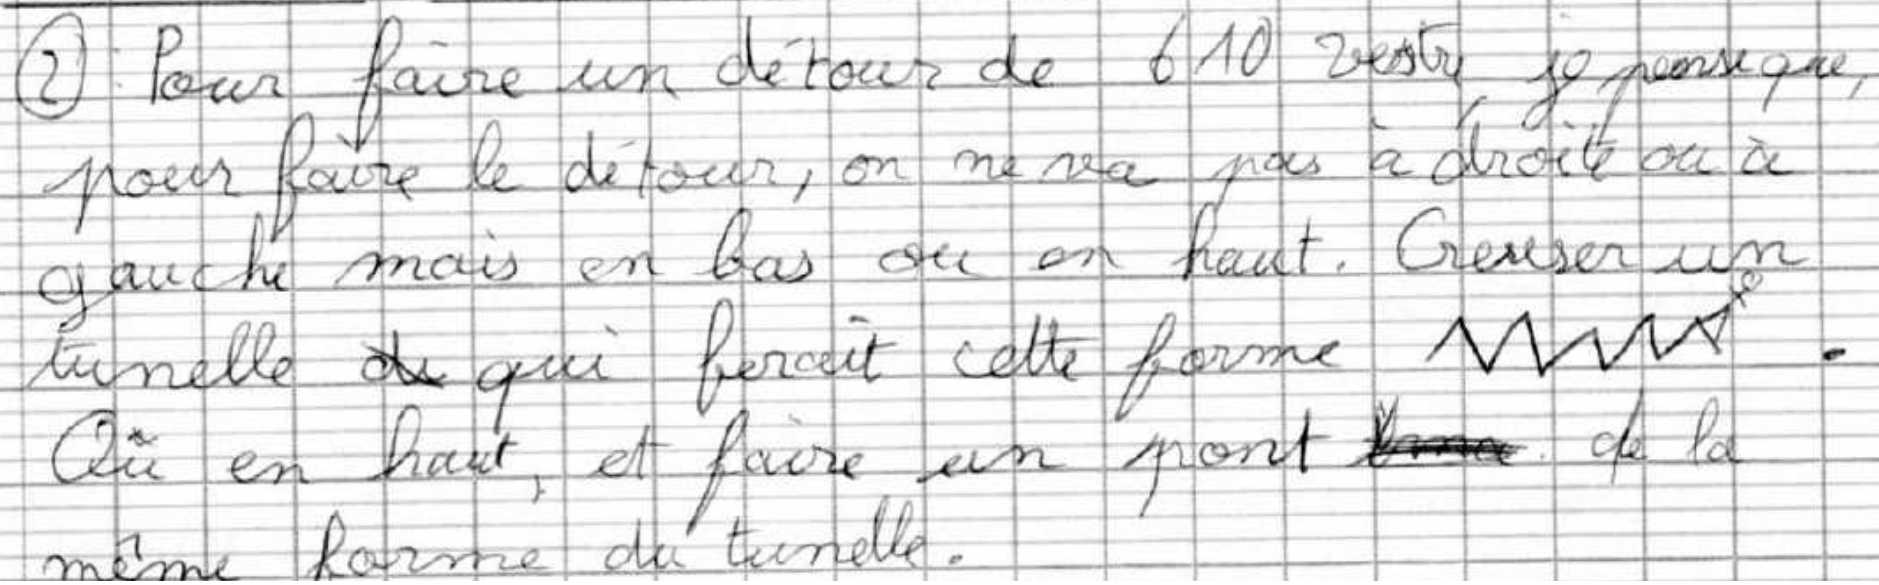 ② Pour faire un détour de 610 zesty, je pense que,
pour faire le détour, on ne va pas à droite ou à
gauche mais en bas ou en haut. Creuser un
tunelle qui ferait cette forme .
Où en haut, et faire un pont de la
même forme du tunelle.